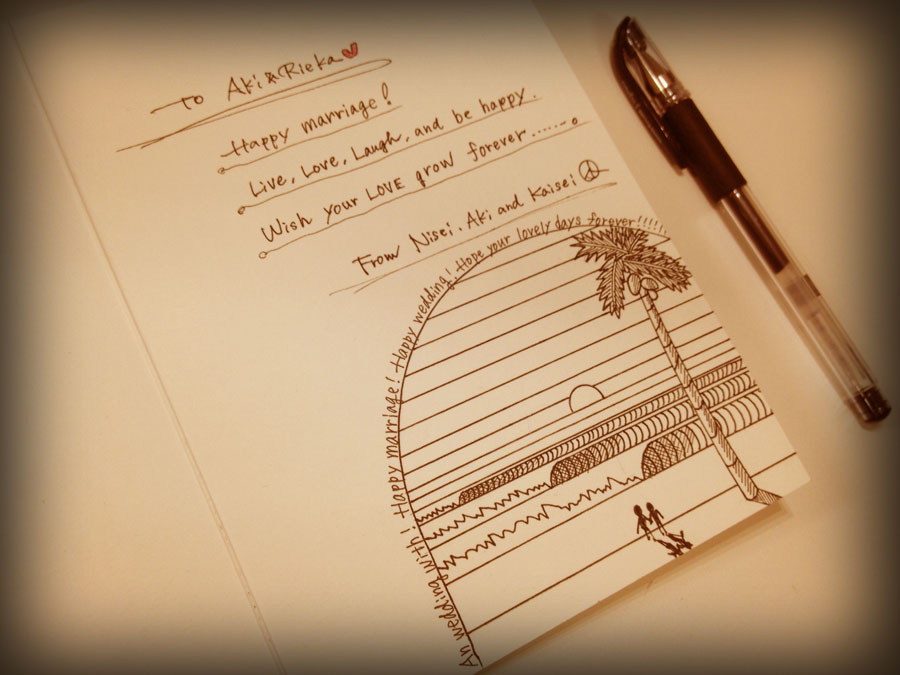 To Aki & Rieka
Happy marriage!
Live, Love, Laugh, and be happy.
Wish your LOVE grow forever......
From Nisei. Aki and Kaisei
An wedding with! Happy marriage! Happy wedding! Hope your lovely days forever!!!!!